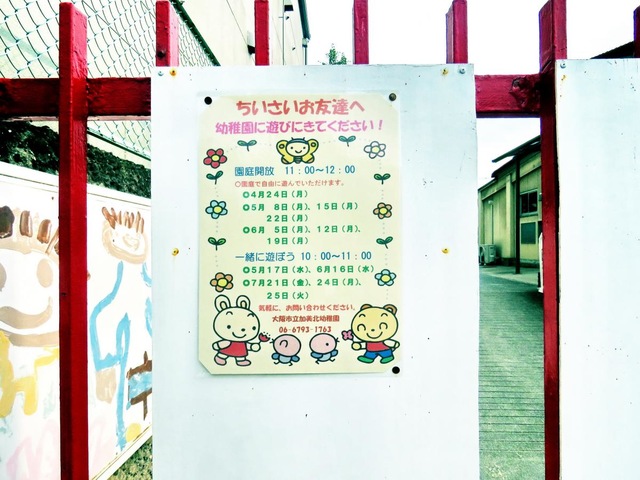 ちいさいお友達へ
幼稚園に遊びにきてください！
園庭開放 11：00〜12：00
○園庭で自由に遊んでいただけます。
◎4月24日（月）
◎5月 8日（月）、15日（月）
22日（月）
◎6月 5日（月）、12日（月）、
19日（月）
一緒に遊ぼう 10：00〜11：00
◎5月17日（水）、6月16日（水）
◎7月21日（金）、24日（月）、
25日（火）
気軽に、お問い合わせください。
大阪市立加美北幼稚園
06-6793-1763